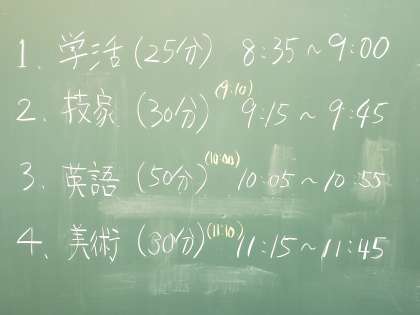 1. 学活 (25分) 8:35~9:00
2. 技家 (30分) (9:10) 9:15~9:45
3. 英語 (50分) (10:00) 10:05~10:55
4. 美術 (30分) (11:10) 11:15~11:45